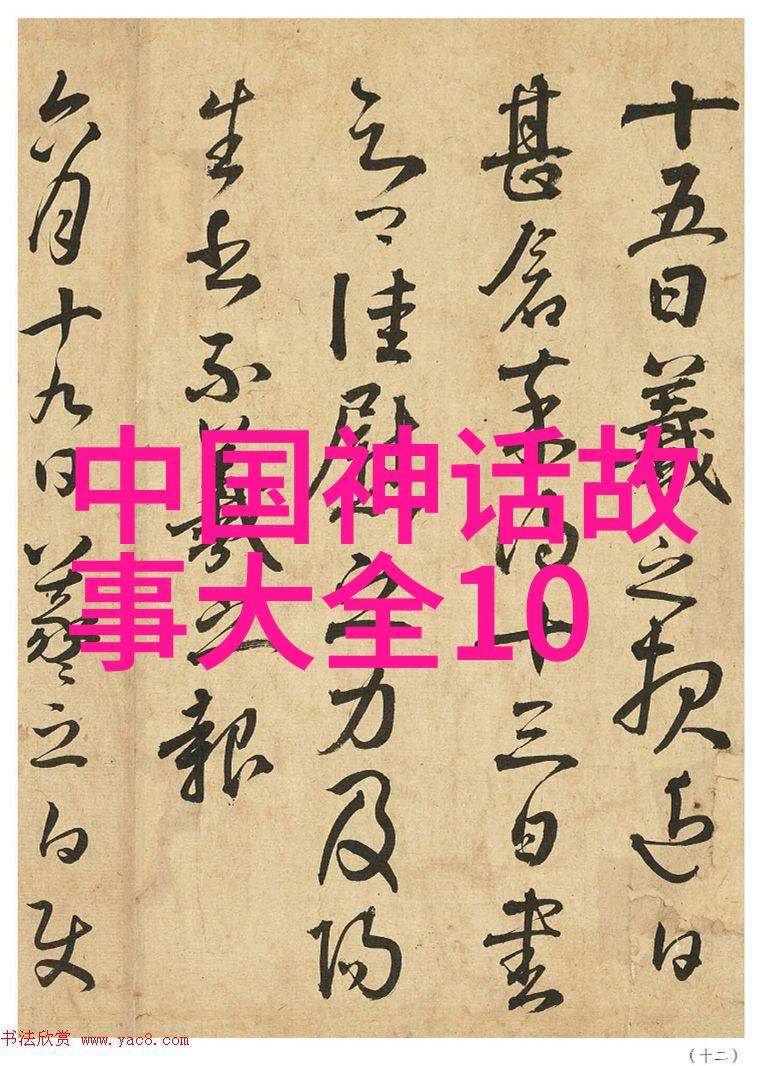 十五日羲之頓近日
甚得十三日書
佳慰之力及
生不羲之報
六月十九日羲之白使
中国神话故
事大全10
书法欣赏 www.yac8.com
（十二）